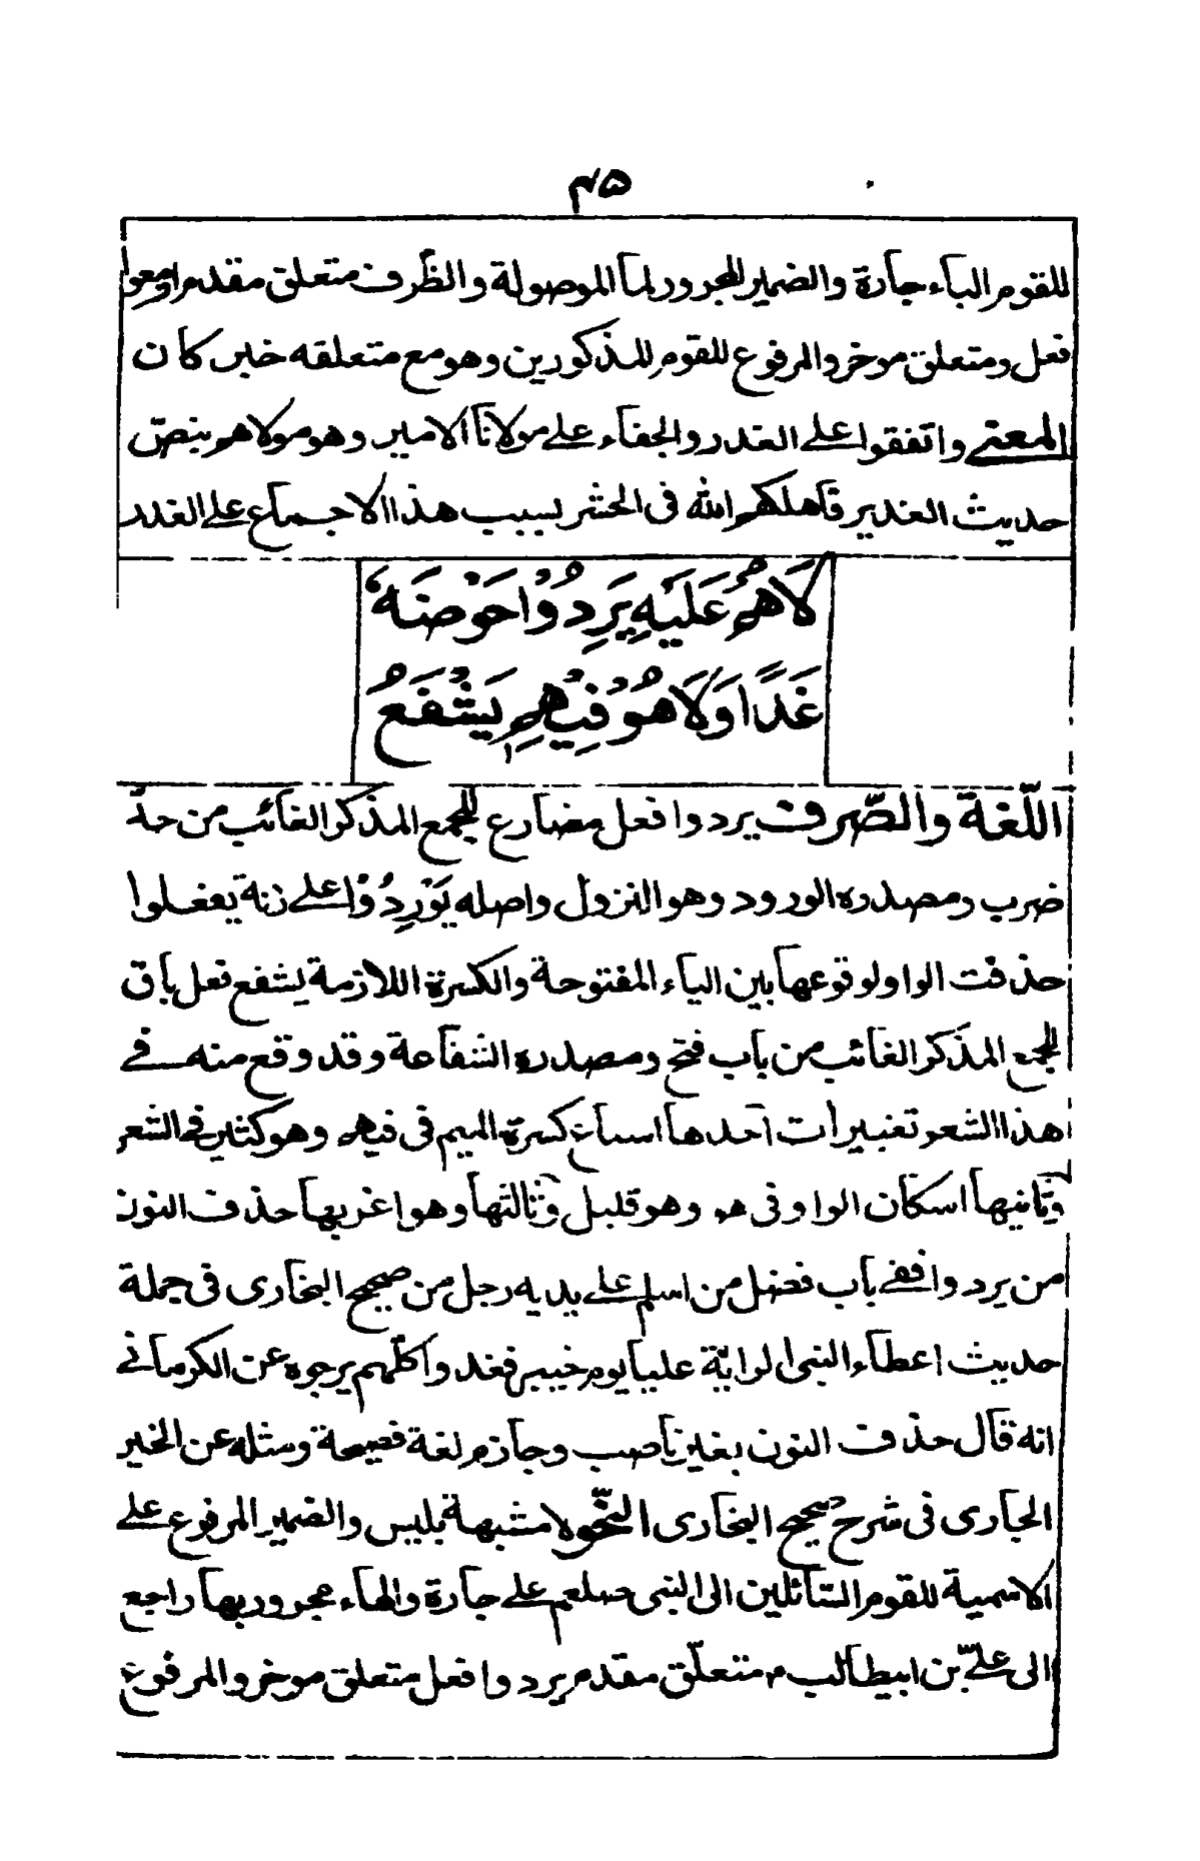 ۴۵
للقوم الباء جارة والضمير المجرور لما الموصولة والظرف متعلق مقدم
فعل ومتعلق موخر والمرفوع للقوم المذكورين وهو مع متعلقه خبر كان
المعنے واتفقوا علے الغدر والجفاء علے مولانا الامير وهو مولاهم بنصّ
حديث الغدير فاهلكهم الله فى الحشر بسبب هذا الاجماع علے الغدر
لَاهُمْ عَلَيْهِ يَرِدُوْا حَوْضَهٗ
غَدًا وَلَا هُوْ فِيْهِمِ يَشْفَعُ
اللّغة والصّرف يردوا فعل مضارع للجمع المذكر الغائب من حدّ
ضرب ومصدره الورود وهو النزول واصله يَوْرِدُوْا علے زنة يفعلوا
حذفت الواو لوقوعها بين الياء المفتوحة والكسرة اللازمة يشفع فعل باق
للجمع المذكر الغائب من باب فتح ومصدره الشفاعة وقد وقع منه فے
هذا الشعر تغييرات احدها اسباغ كسرة الميم فى فيهم وهو كثير فے الشعر
وثانيها اسكان الواو فى هو وهو قليل وثالثها وهو اغربها حذف النون
من يردوا ففے باب فضل من اسلم علے يديه رجل من صحيح البخارى فى جملة
حديث اعطاء النبى الراية عليا يوم خيبر فغدوا كلّهم يرجوه عن الكرمانے
انه قال حذف النون بغير ناصب وجازم لغة فصيحة ومثله عن الخير
الجارى فى شرح صحيح البخارى النّحو لا مشبهة بليس والضمير المرفوع علے
الاسمية للقوم السّائلين الى النبى صلعم علے جارة والهاء مجرور بها راجع
الى علىّ بن ابيطالب م متعلّق مقدم يردوا فعل متعلق موخر والمرفوع